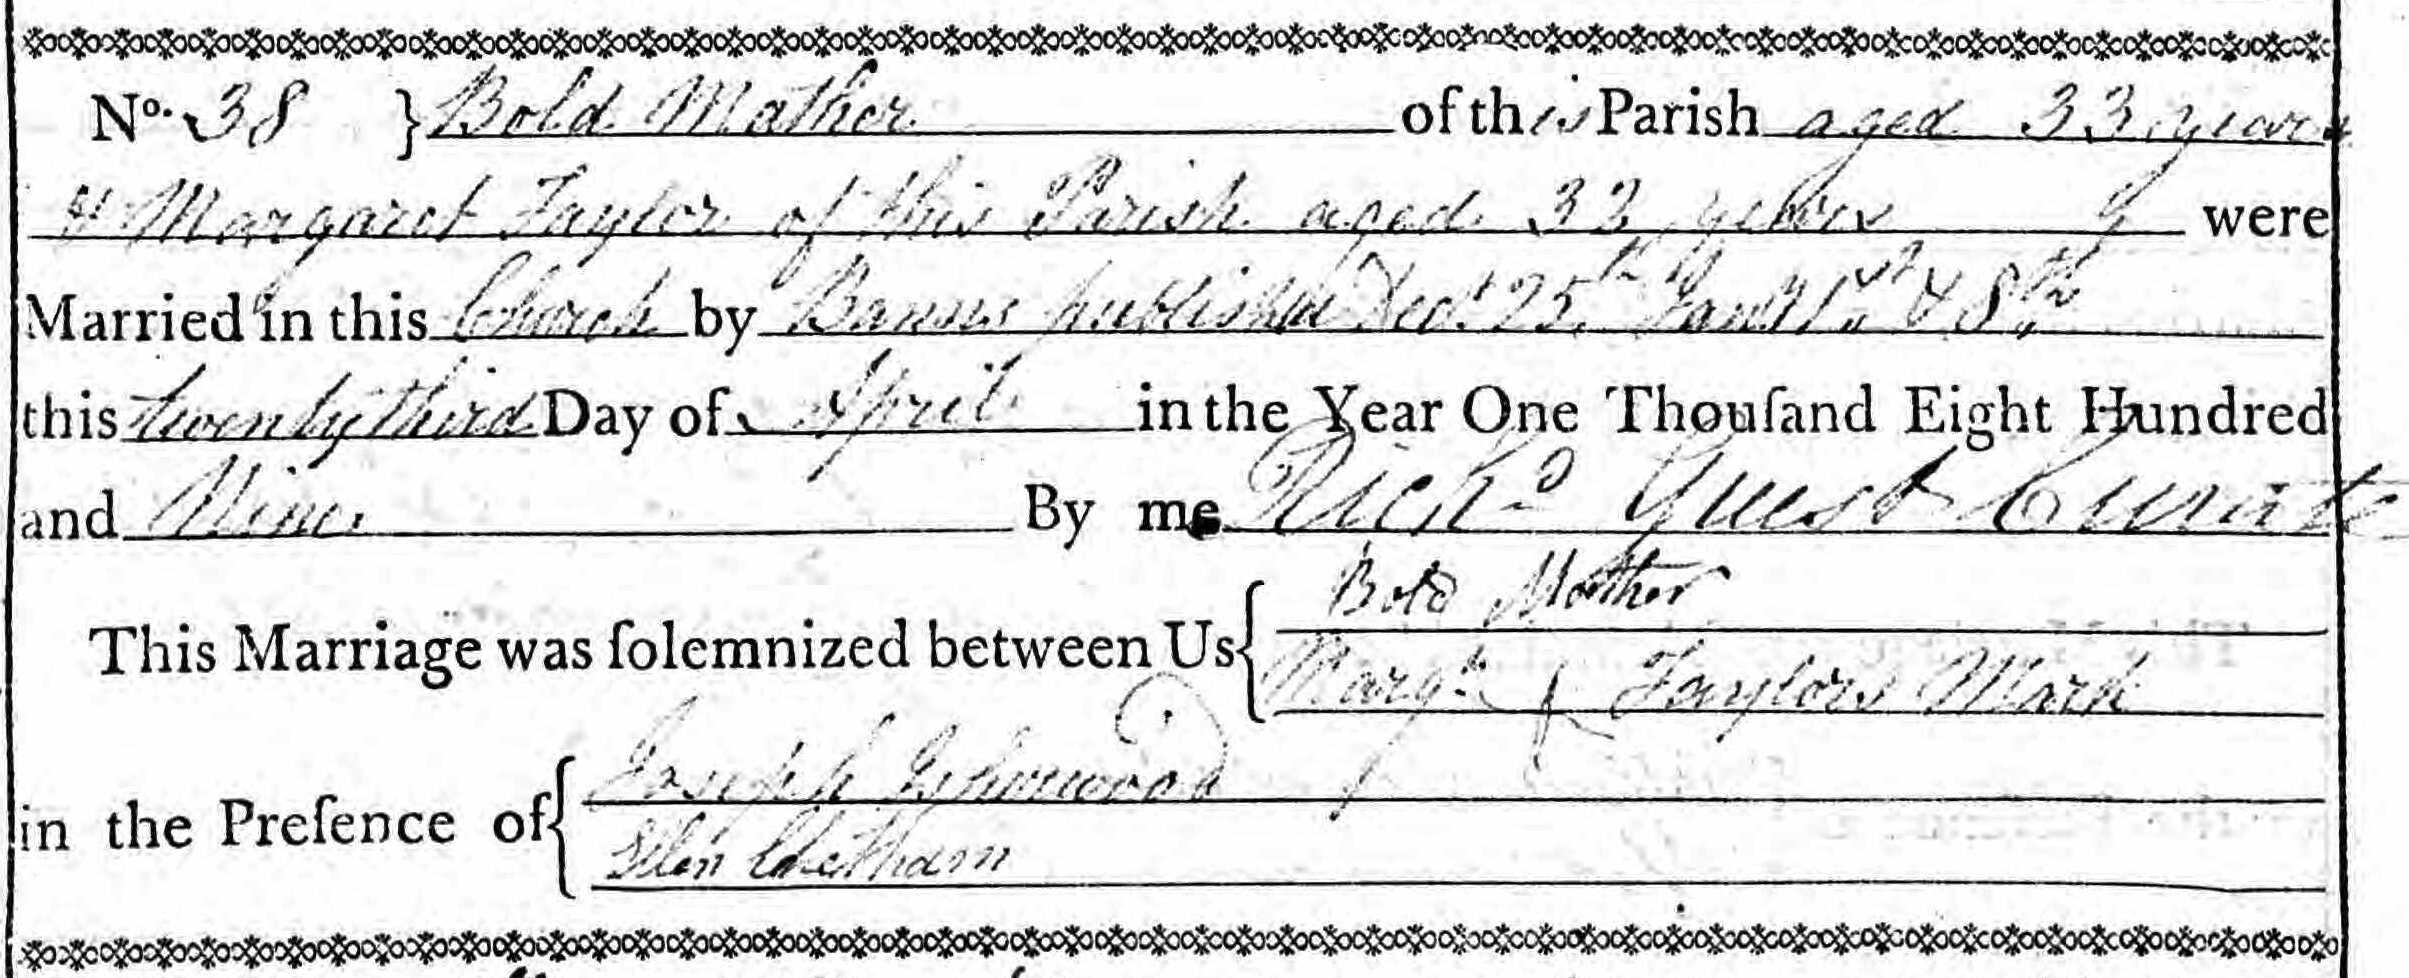 No. 38 } Bold Mather of this Parish aged 33 years
& Margaret Taylor of this Parish aged 32 years were
Married in this Church by Banns published Decr. 25th Jany. 1st & 8th
this twenty third Day of April in the Year One Thouſand Eight Hundred
and Nine By me Richd Guest Curate
This Marriage was ſolemnized between Us { Bold Mather
Margt. X Taylors Mark
in the Preſence of { Joseph
Ellen Chetham